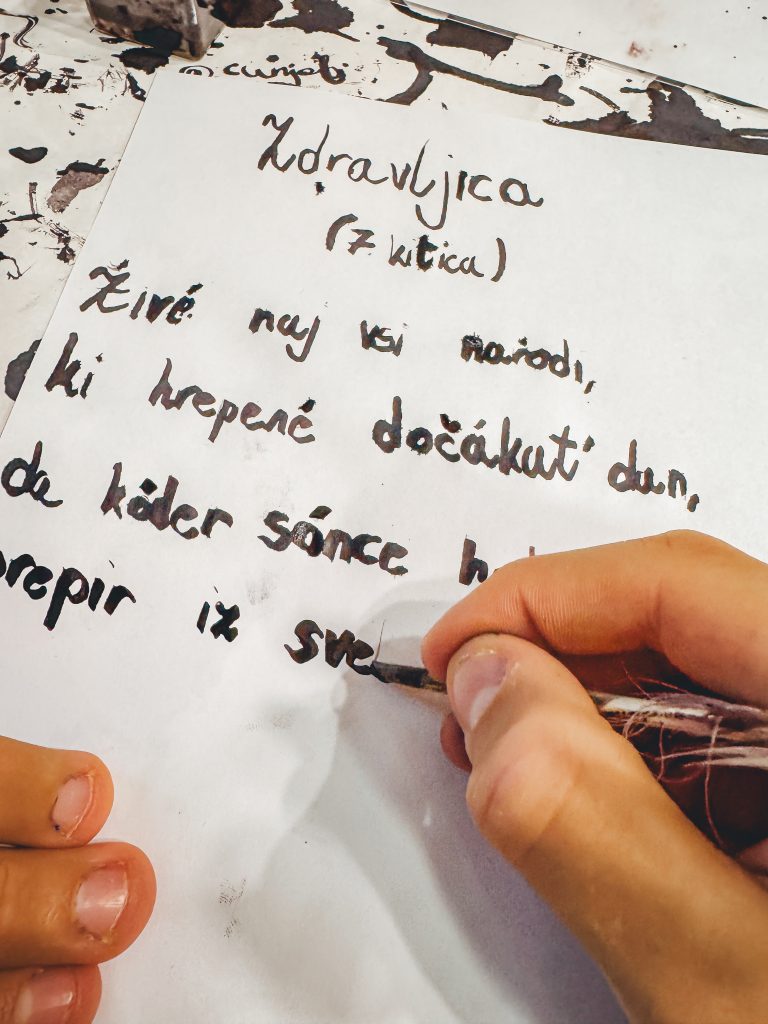 Zdravljica
(7 kitica)
Živé naj vsi narodi,
ki hrepené dočákat' dan,
da kóder sónce
prepir iz sve